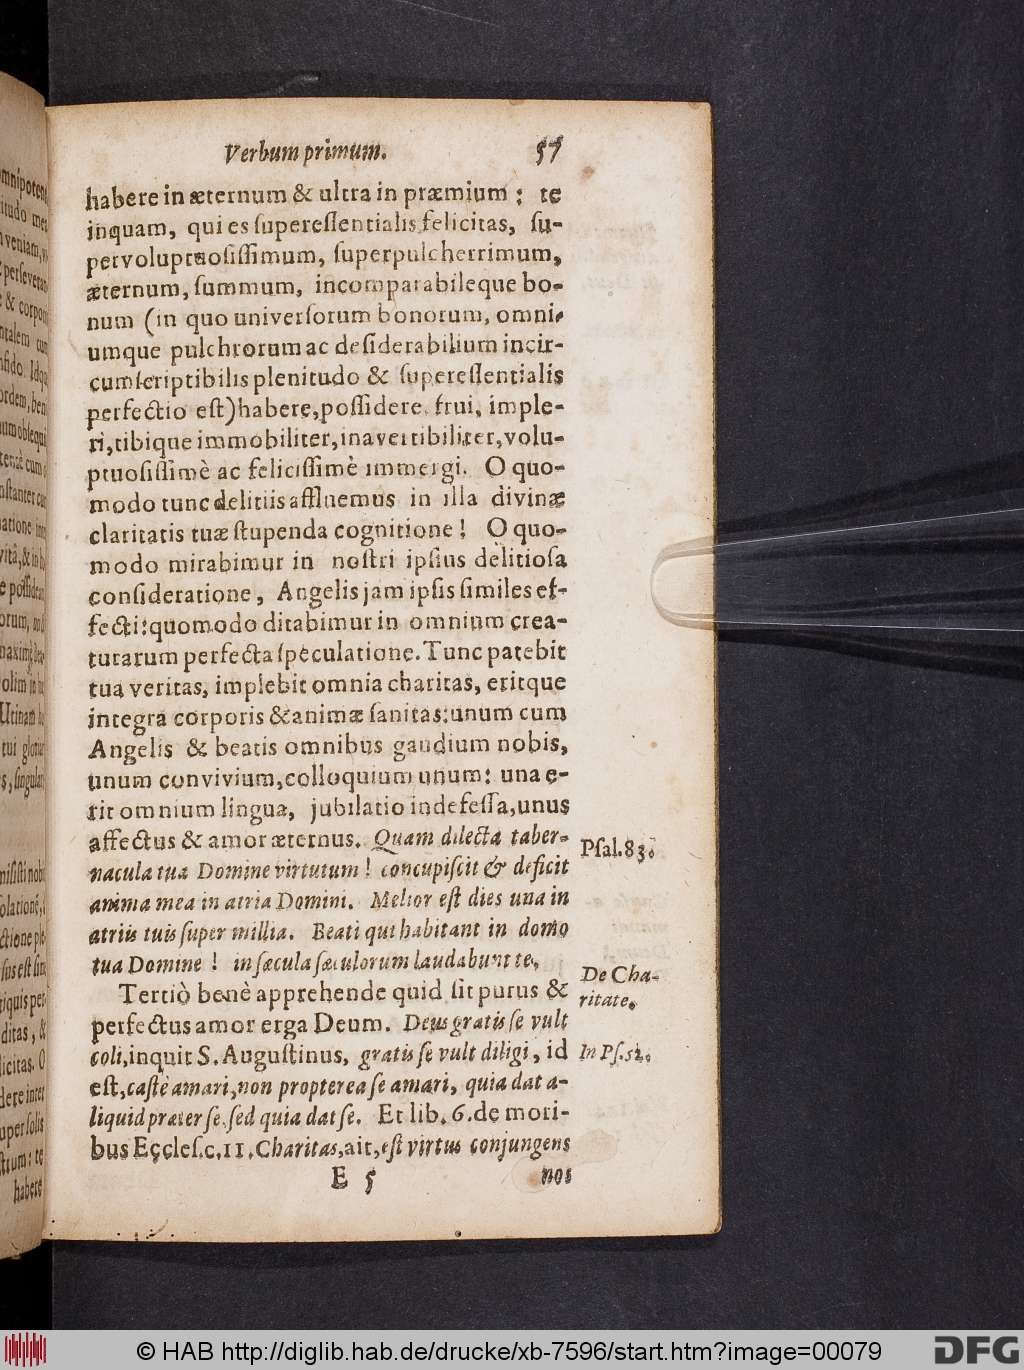 Verbum primum. 57
habere in æternum & ultra in præmium: te
inquam, qui es superessentialis felicitas, su-
pervoluptuosissimum, superpulcherrimum,
æternum, summum, incomparabileque bo-
num (in quo universorum bonorum, omni-
umque pulchrorum ac desiderabilium incir-
cumscriptibilis plenitudo & superessentialis
perfectio est) habere, possidere, frui, imple-
ri, tibique immobiliter, inavertibiliter, volu-
ptuosissimè ac felicissimè immergi. O quo-
modo tunc delitiis affluemus in illa divinæ
claritatis tuæ stupenda cognitione! O quo-
modo mirabimur in nostri ipsius delitiosa
consideratione, Angelis jam ipsis similes ef-
fecti: quomodo ditabimur in omnium crea-
turarum perfecta speculatione. Tunc patebit
tua veritas, implebit omnia charitas, eritque
integra corporis & animæ sanitas: unum cum
Angelis & beatis omnibus gaudium nobis,
unum convivium, colloquium unum: una e-
rit omnium lingua, jubilatio indefessa, unus
affectus & amor æternus. Quam dilecta taber-
nacula tua Domine virtutum! concupiscit & deficit
anima mea in atria Domini. Melior est dies una in
atriis tuis super millia. Beati qui habitant in domo
tua Domine! in sæcula sæculorum laudabunt te.
Psal. 83.
Tertiò benè apprehende quid sit purus &
perfectus amor erga Deum. Deus gratis se vult
coli, inquit S. Augustinus, gratis se vult diligi, id
est, castè amari, non propterea se amari, quia dat a-
liquid præter se, sed quia dat se. Et lib. 6. de mori-
bus Eccles. c. 11. Charitas, ait, est virtus conjungens
De Cha-
ritate.
In Ps. 52.
E 5 nos
omnipotens
itudo mea
veniam,
perseveran
& corpor
ntalem cum
nfido. Idq
ordem, ben
um obsequi
cum
nstanter cum
natione
vitâ, & in
possid
orum,
maximè
olim in
Utinam
tui gloria
s, singular
misisti nobi
olatione,
ctione ple
sus est
tiquis per
ditas, &
licitas. O
dere inter
uper solis
: te
habere
© HAB http://diglib.hab.de/drucke/xb-7596/start.htm?image=00079
DFG